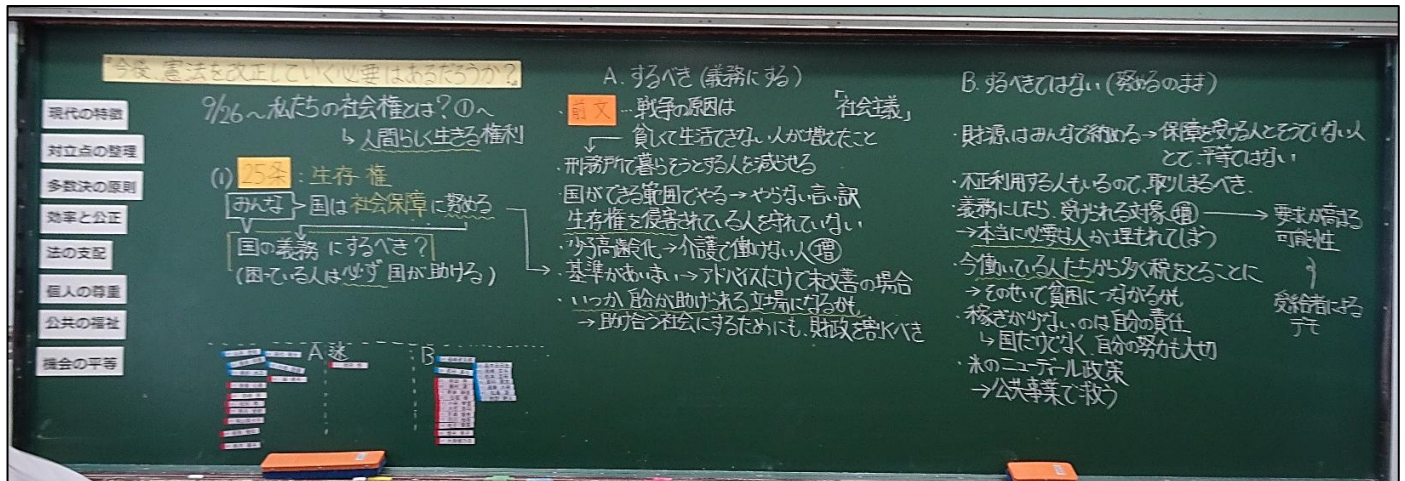 『今後、憲法を改正していく必要はあるだろうか？』
現代の特徴
対立点の整理
多数決の原則
効率と公正
法の支配
個人の尊重
公共の福祉
機会の平等
9/26～私たちの社会権とは？①～
↳人間らしく生きる権利
(1) 25条：生存権
みんな 国は社会保障に努める
国の義務にするべき？
(困っている人は必ず国が助ける)
A 迷 B
A. するべき(義務にする)
・前文…戦争の原因は 「社会主義」
貧しくて生活できない人が増えたこと
・刑務所で暮らそうとする人を減らせる
・国ができる範囲でやる→やらない言い訳
生存権を侵害されている人を守れていない
・少子高齢化→介護で働けない人増
・基準があいまい→アドバイスだけで未改善の場合
・いつか自分が助けられる立場になるかも
→助け合う社会にするためにも、財政を割くべき
B. するべきではない(努めるのまま)
・財源はみんなで納める→保障を受ける人とそうでない人
とで、平等ではない
・不正利用する人もいるので、取りしまるべき.
・義務にしたら、受けられる対象増→要求が高まる
可能性
→本当に必要な人が埋もれてしまう
受給者による
デモ
・今働いている人たちから多く税をとることに
→そのせいで貧困につながるかも
・稼ぎが少ないのは自分の責任
↳国だけでなく、自分の努力も大切
・米のニューディール政策
→公共事業で救う